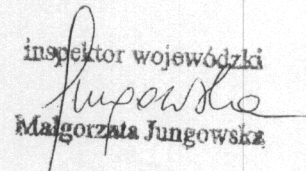 inspektor wojewódzki
Jungowska
Małgorzata Jungowska